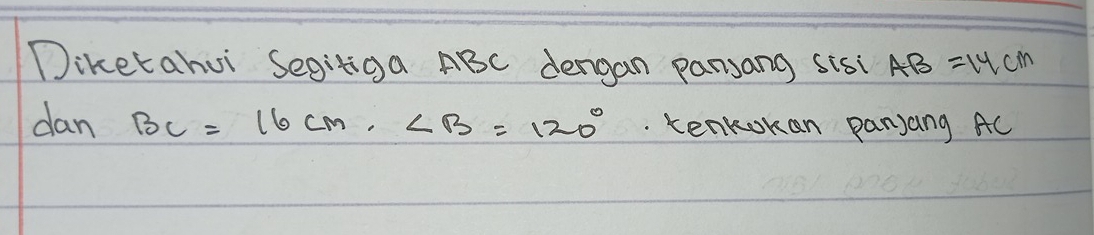 Diketahui Segitiga ABC dengan panjang sisi AB = 14 cm
dan BC = 16 cm. ∠B = 120°. tenkukan panjang AC